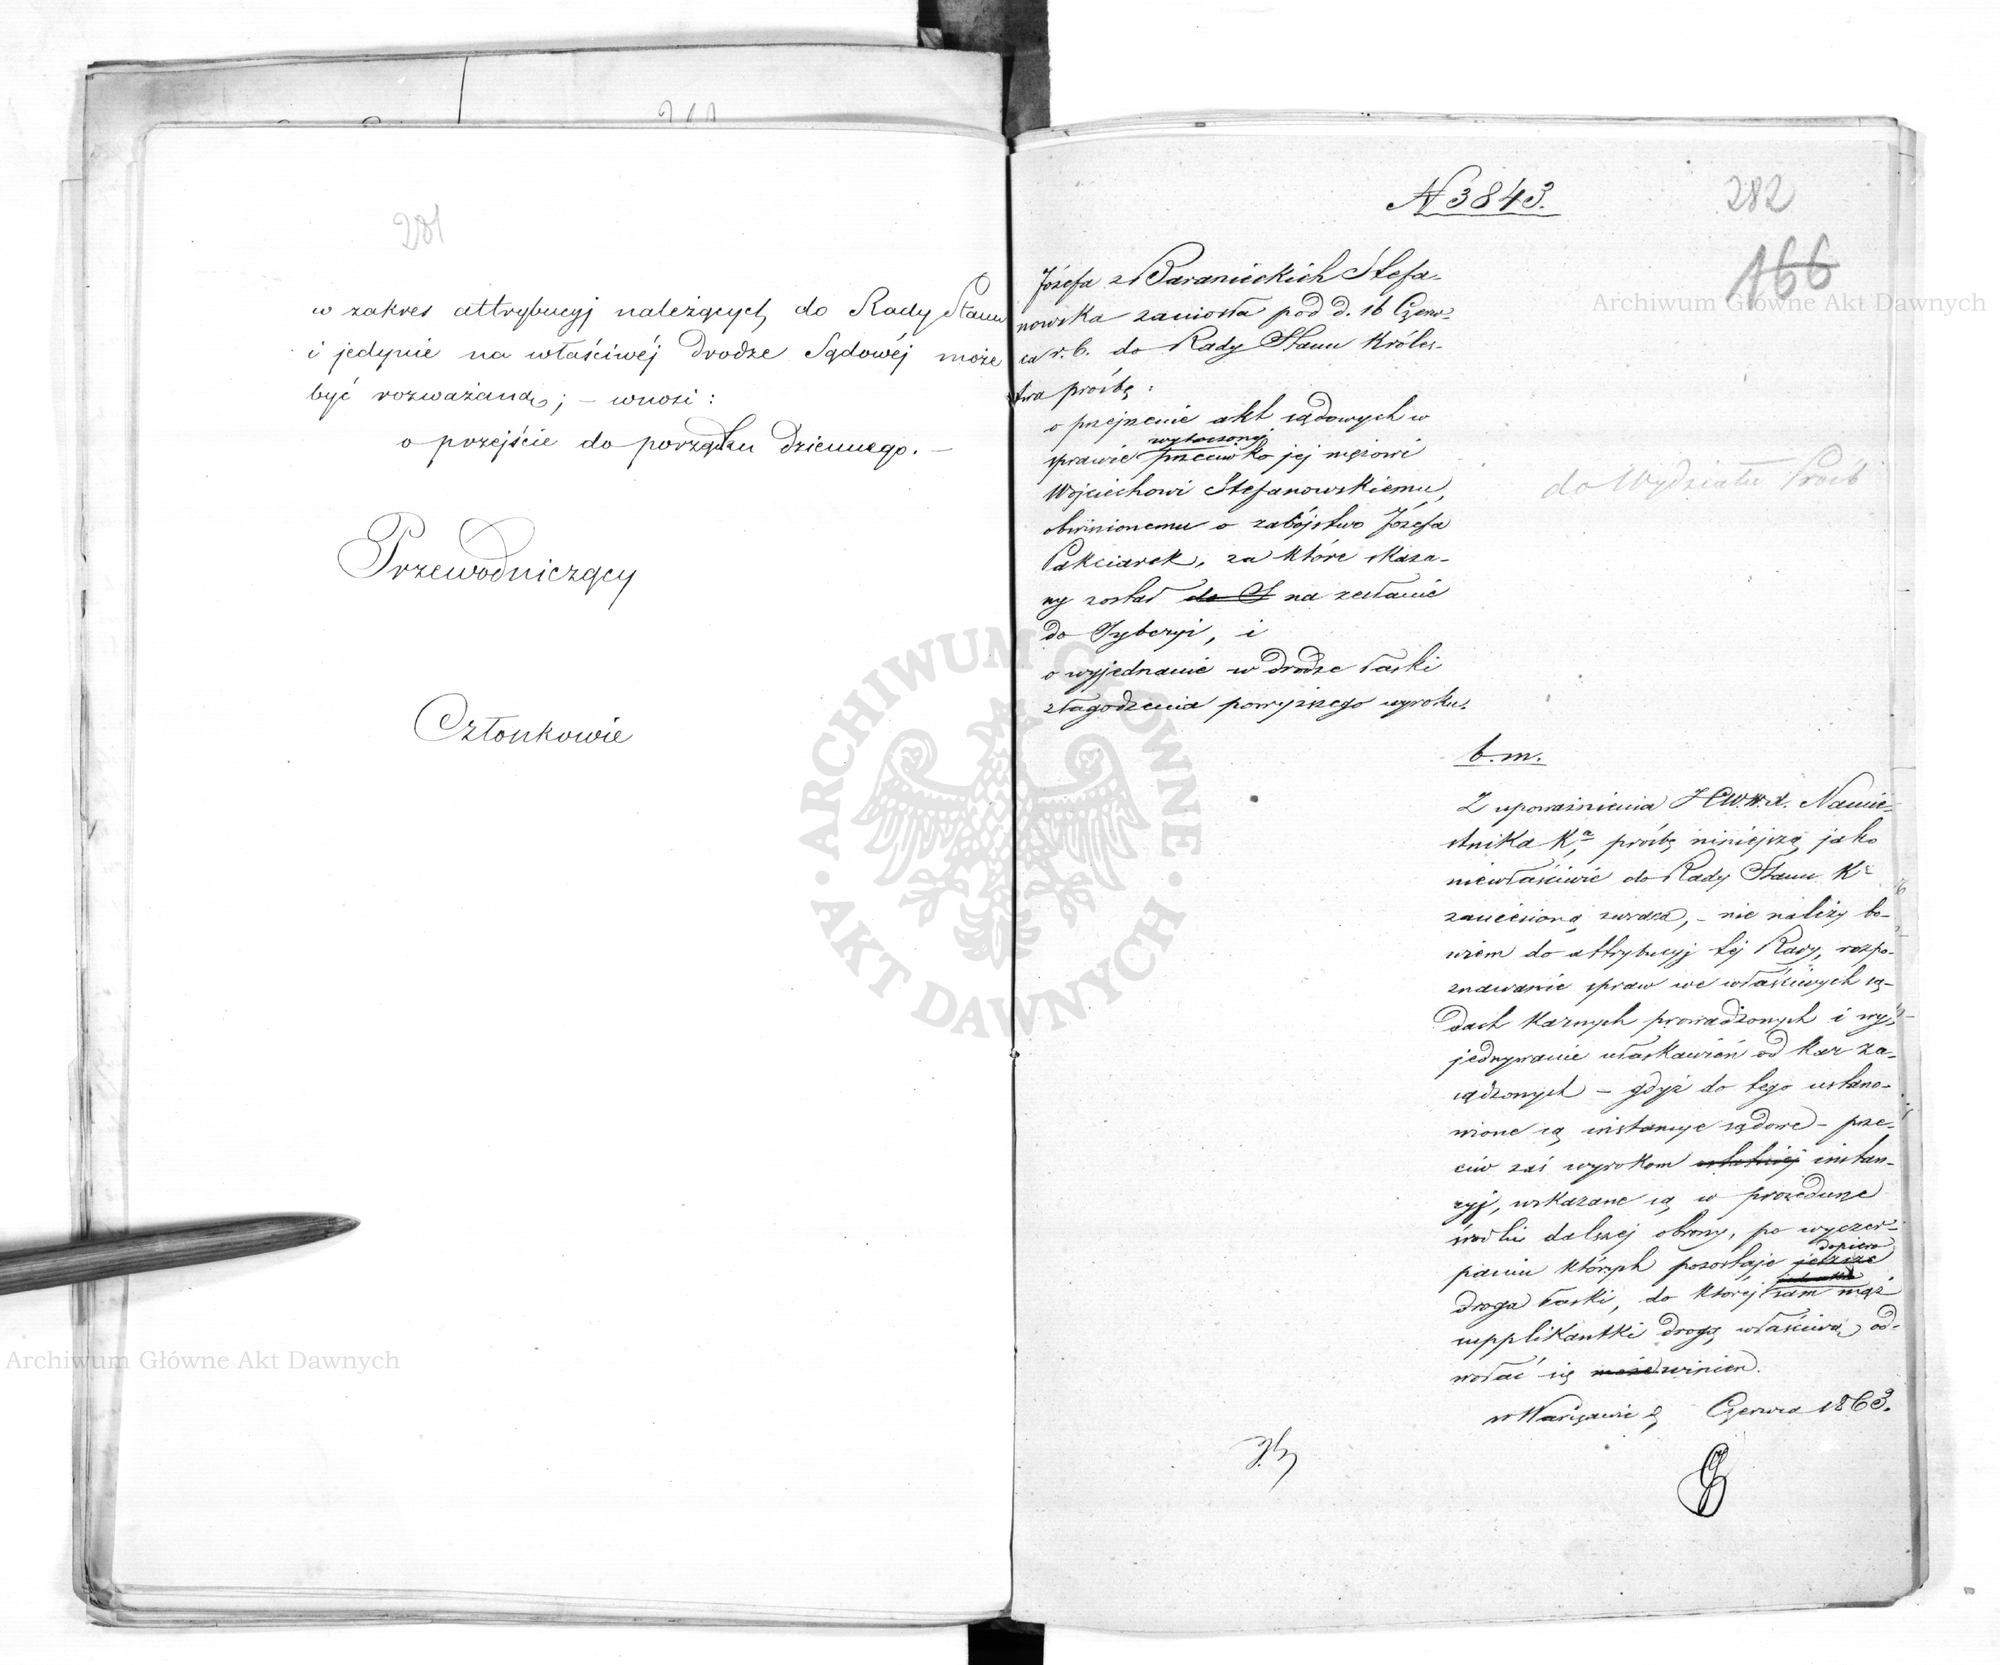 281
w zakres attrybucyj należących do Rady Stanu
i jedynie na właściwéj drodze Sądowéj może
być rozważaną; – wnosi:
o przejście do porządku dziennego. –
Przewodniczący
Członkowie
N 3843.
282
166
Józefa z Baranieckich Stefa-
nowska zaniosła pod d. 16 Czerw-
ca r. b. do Rady Stanu Króles-
twa prośbę:
o przejrzenie akt sądowych w
wytoczonej
sprawie przeciwko jej mężowi
Wojciechowi Stefanowskiemu,
obwinionemu o zabójstwo Józefa
Pakciarek, za które skaza-
ny został do S na zesłanie
do Syberyi, i
o wyjednanie w drodze łaski
złagodzenia powyższego wyroku.
do Wydziału Próśb
b. m.
Z upoważnienia JCW. W. X. Namie-
stnika Kª, prośbę niniejszą jako
niewłaściwie do Rady Stanu Kª
zaniesioną zwraca, – nie należy bo-
wiem do attrybucyj tej Rady, rozpo-
znawanie spraw we właściwych są-
dach karnych prowadzonych i wy-
jednywanie ułaskawień od kar za-
sądzonych – gdyż do tego ustano-
wione są instancye sądowe – prze-
ciw zaś wyrokom ostatniej instan-
cyj, wskazane są w procedurze
środki dalszej obrony, po wyczer-
dopiero
paniu których pozostaje jeszcze
droga łaski, do której sam mąż
supplikantki drogą właściwą od-
wołać się może winien.
w Warszawie d. Czerwca 1863.